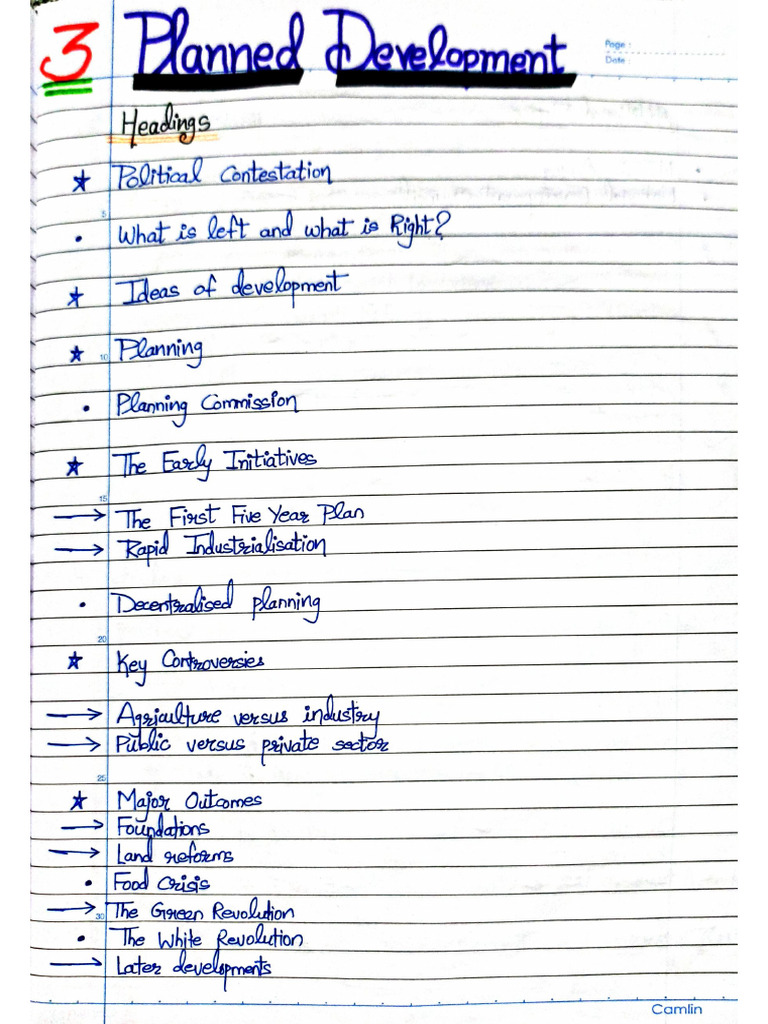 3 Planned Development
Page :
Date :
Headings
★ Political Contestation
5
• What is left and what is Right?
★ Ideas of development
10
★ Planning
• Planning Commission
★ The Early Initiatives
15
→ The First Five Year Plan
→ Rapid Industrialisation
• Decentralised planning
20
★ Key Controversies
→ Agriculture versus industry
→ Public versus private sector
25
★ Major Outcomes
→ Foundations
→ Land reforms
• Food crisis
30
→ The Green Revolution
• The White Revolution
→ Later developments
Camlin